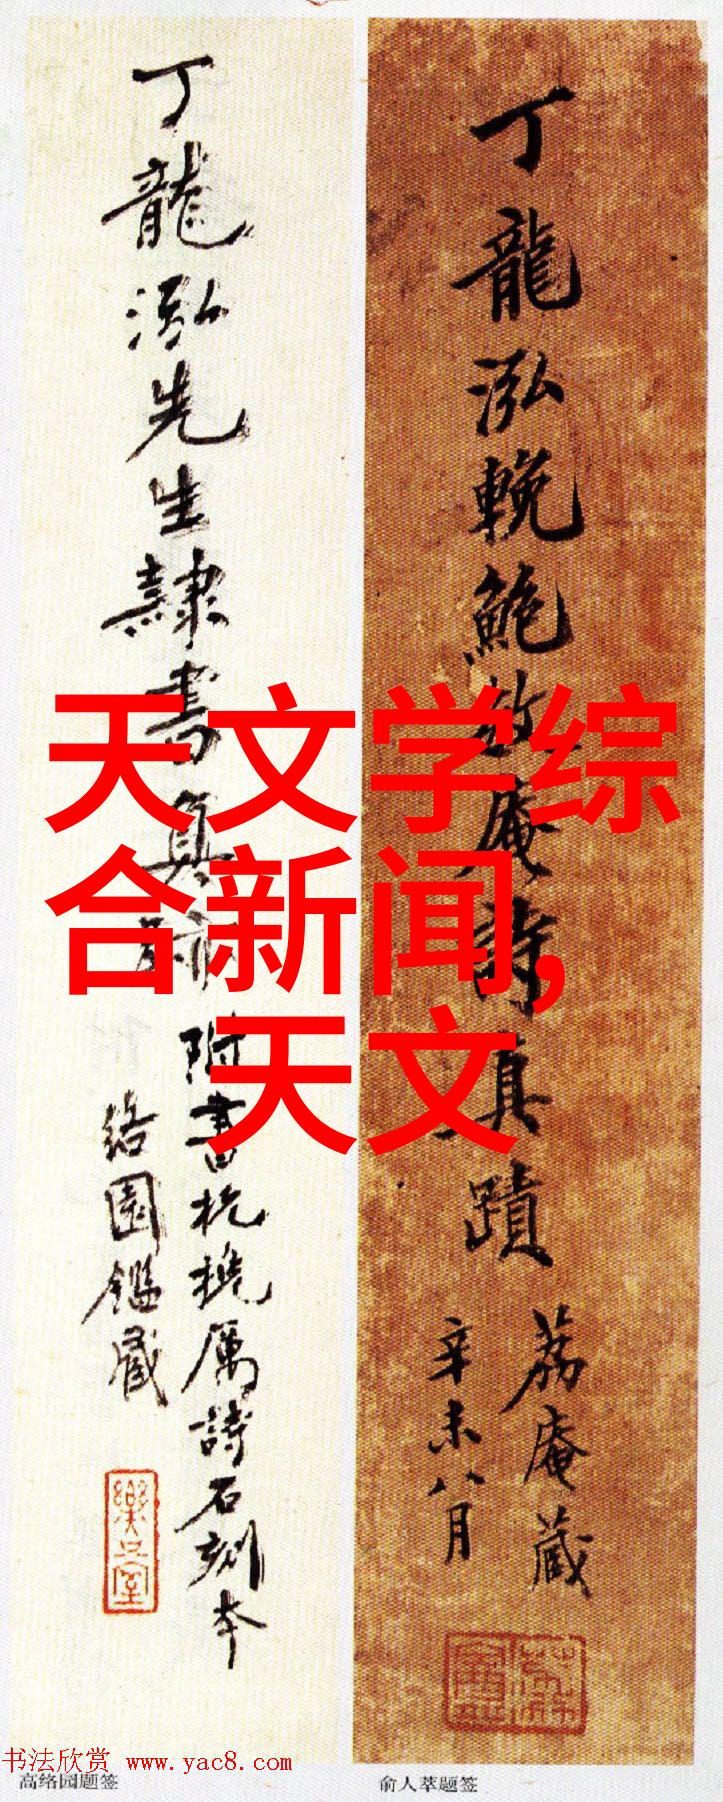 丁龍泓先生隸書真跡
附書杭挽厲詩石刻本
絡園鑑藏
樂只室
丁龍泓輓鮑放庵詩真蹟
荔庵藏
辛未八月
天文学综
合新闻,
天文
书法欣赏 www.yac8.com
高络园题签
俞人萃题签